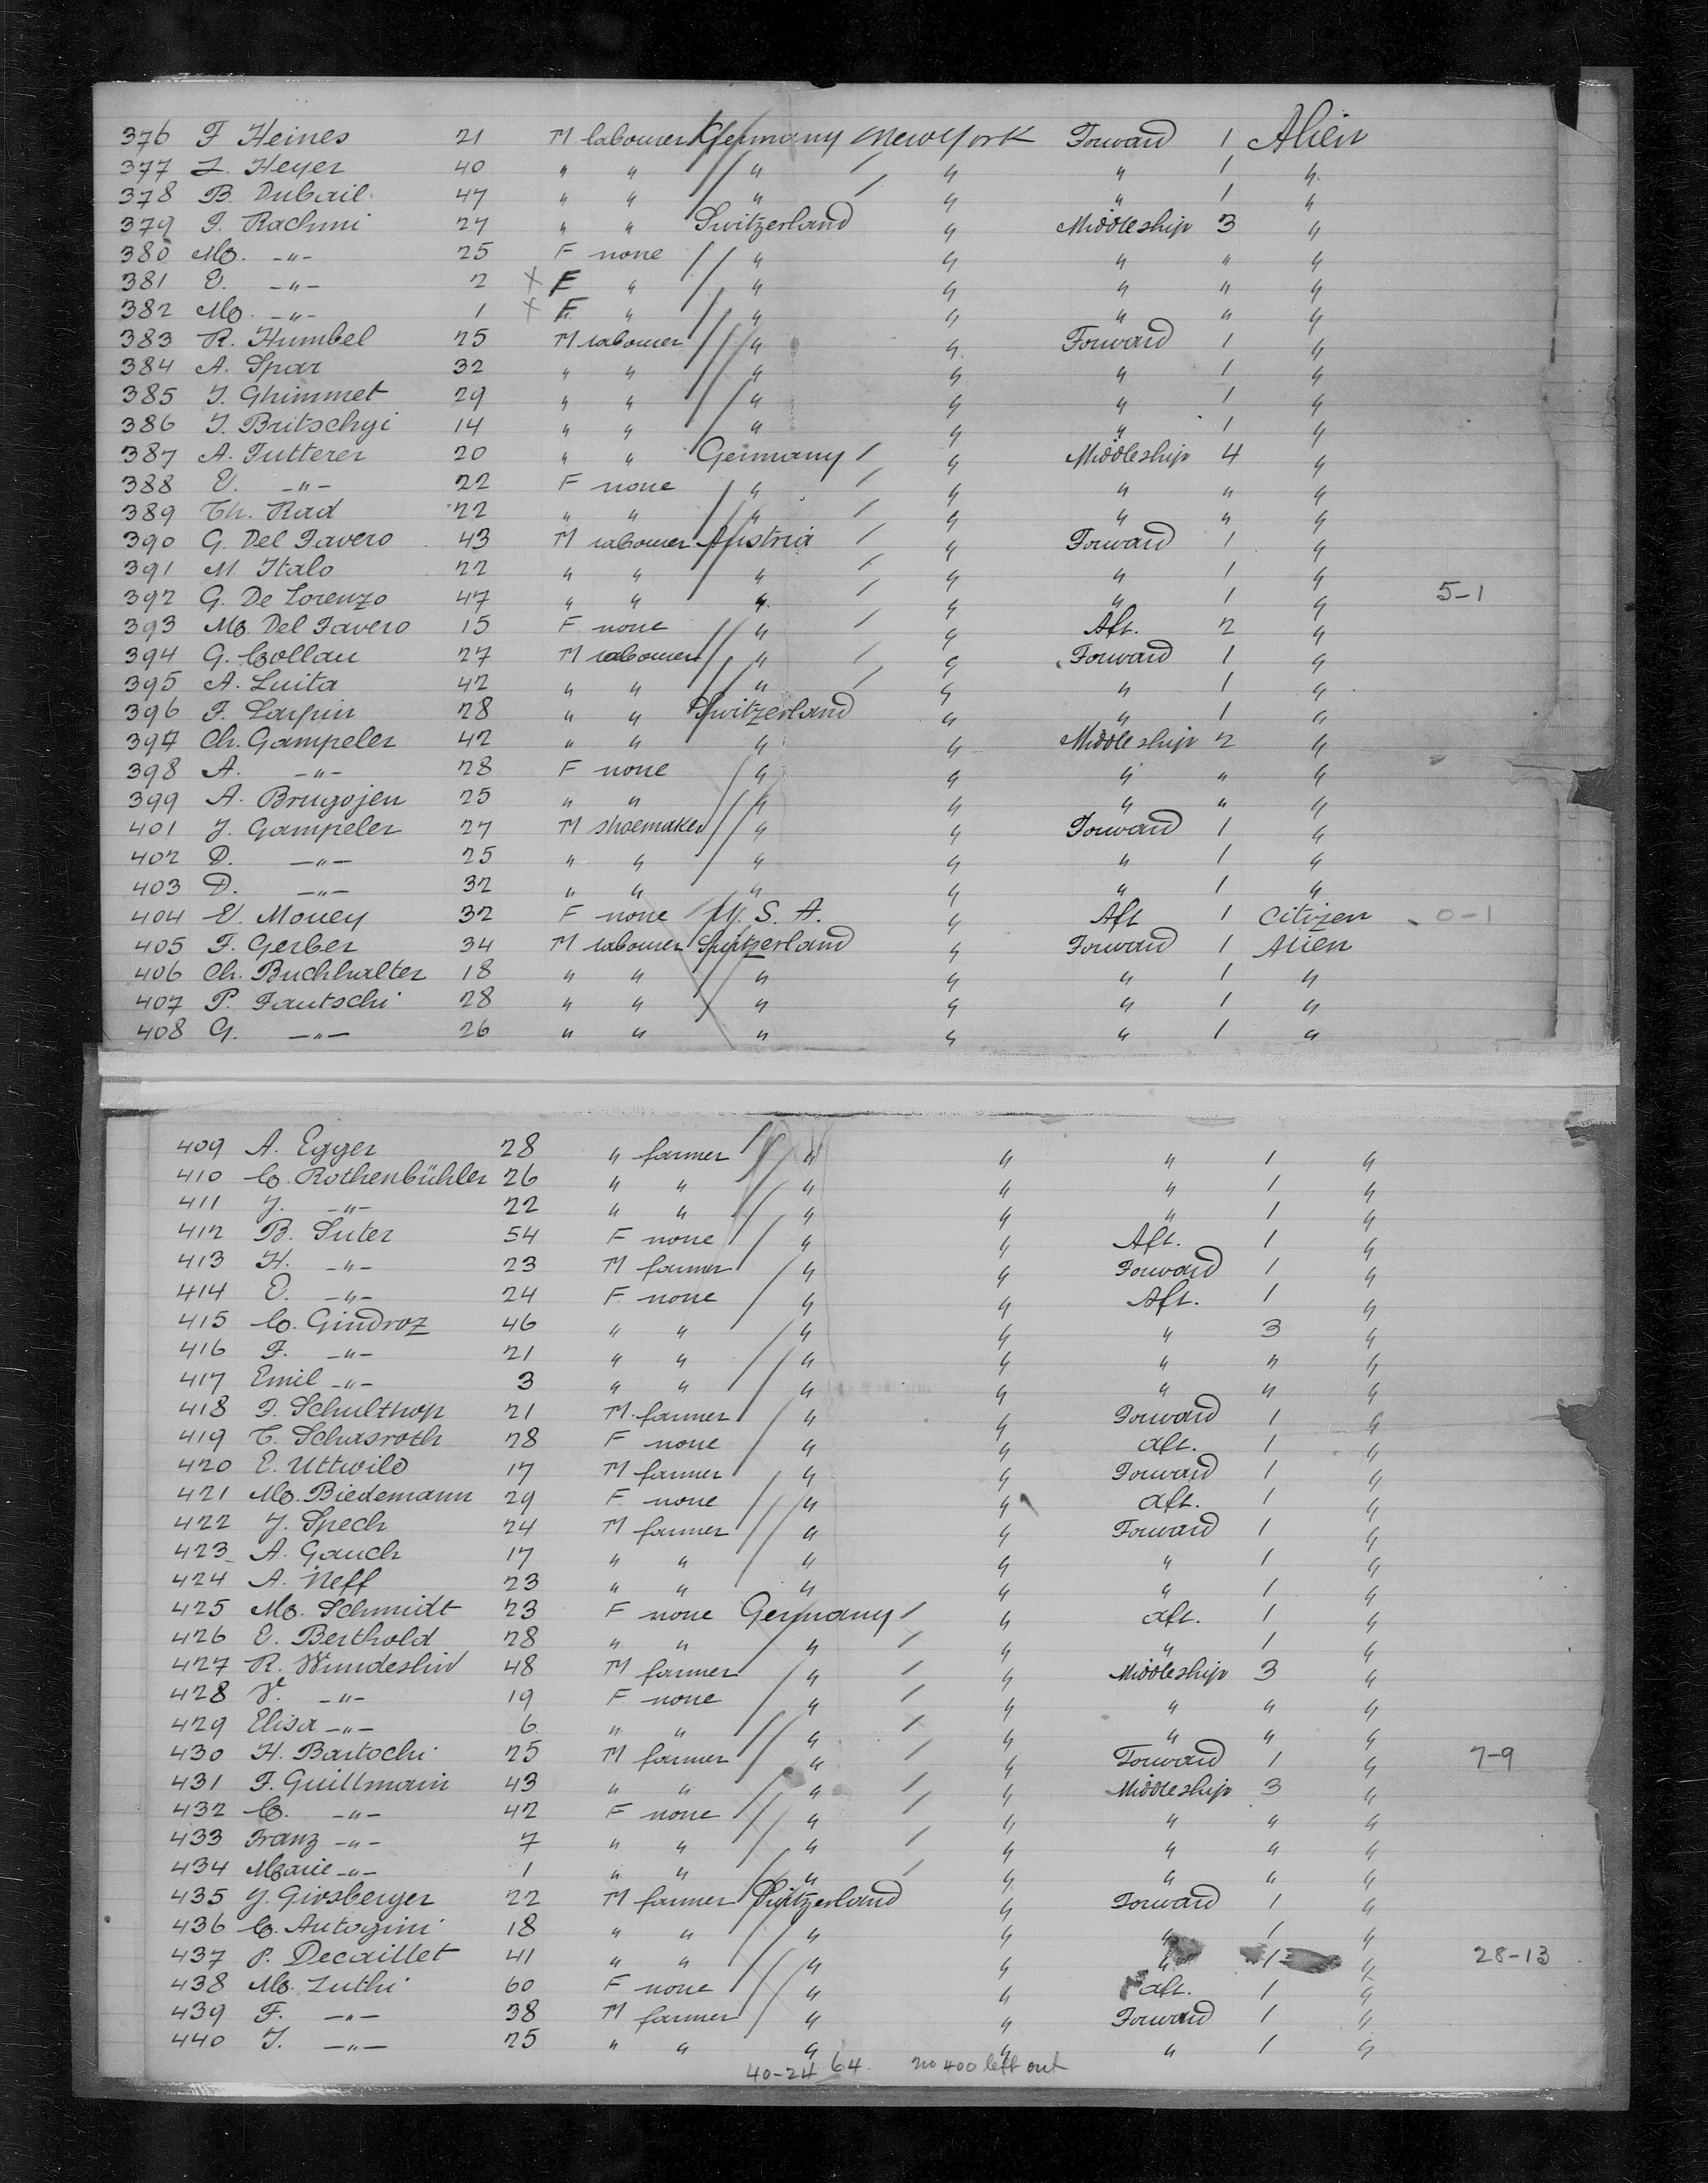 376 F Heines 21 M labourer Germany New York Forward 1 Alien
377 L. Heyer 40 " " " " " 1 "
378 B. Dubail 47 " " " " " 1 "
379 F. Rachmi 27 " " Switzerland " Middleship 3 "
380 M. -"- 25 F none " " " " "
381 E. -"- 2 X F " " " " " "
382 M. -"- 1 X F " " " " " "
383 R. Humbel 25 M labourer " " Forward 1 "
384 A. Spar 32 " " " " " 1 "
385 J. Ghimmet 29 " " " " " 1 "
386 J. Britschgi 14 " " " " " 1 "
387 A. Futterer 20 " " Germany " Middleship 4 "
388 E. -"- 22 F none " " " " "
389 Th. Rad 22 " " " " " " "
390 G. Del Favero 43 M labourer Austria " Forward 1 "
391 M. Italo 22 " " " " " 1 "
392 G. De Lorenzo 47 " " " " " 1 " 5-1
393 M. Del Favero 15 F none " " Aft. 2 "
394 G. Collau 27 M labourer " " Forward 1 "
395 A. Luita 42 " " " " " 1 "
396 F. 28 " " Switzerland " " 1 "
397 Ch. Gampeler 42 " " " " Middleship 2 "
398 A. -"- 28 F none " " " " "
399 A. Brugojen 25 " " " " " " "
401 J. Gampeler 27 M shoemaker " " Forward 1 "
402 D. -"- 25 " " " " " 1 "
403 D. -"- 32 " " " " " 1 "
404 E. Mouey 32 F none U. S. A. " Aft 1 Citizen 0-1
405 F. Gerber 34 M labourer Switzerland " Forward 1 Alien
406 Ch. Buchhalter 18 " " " " " 1 "
407 P. Fautschi 28 " " " " " 1 "
408 G. -"- 26 " " " " " 1 "
409 A. Egger 28 " farmer " " " 1 "
410 C. Rothenbühler 26 " " " " " 1 "
411 J. -"- 22 " " " " " 1 "
412 B. Suter 54 F none " " Aft. 1 "
413 H. -"- 23 M farmer " " Forward 1 "
414 E. -"- 24 F none " " Aft. 1 "
415 C. Gindroz 46 " " " " " 3 "
416 F. -"- 21 " " " " " " "
417 Emil -"- 3 " " " " " " "
418 F. 21 M. farmer " " Forward 1 "
419 T. Schasroth 28 F none " " aft. 1 "
420 E. Uttwild 17 M farmer " " Forward 1 "
421 M. Biedemann 29 F none " " aft. 1 "
422 J. Spech 24 M farmer " " Forward 1 "
423 A. Gauch 17 " " " " " 1 "
424 A. Neff 23 " " " " " 1 "
425 M. Schmidt 23 F none Germany " aft. 1 "
426 E. Berthold 28 " " " " " 1 "
427 R. Wundeslid 48 M farmer " " Middleship 3 "
428 -"- 19 F none " " " " "
429 Elisa -"- 6 " " " " " " "
430 H. Bartochi 25 M farmer " " Forward 1 " 7-9
431 F. Guillmain 43 " " " " Middleship 3 "
432 C. -"- 42 F none " " " " "
433 Franz -"- 7 " " " " " " "
434 Marie -"- 1 " " " " " " "
435 J. Girsberger 22 M farmer Switzerland " Forward 1 "
436 C. Antognini 18 " " " " " 1 "
437 P. Decaillet 41 " " " " " 1 " 28-13
438 M. Luthi 60 F none " " aft. 1 "
439 F. -"- 38 M farmer " " Forward 1 "
440 J. -"- 25 " " " " " 1 "
40-24 64 no 400 left out